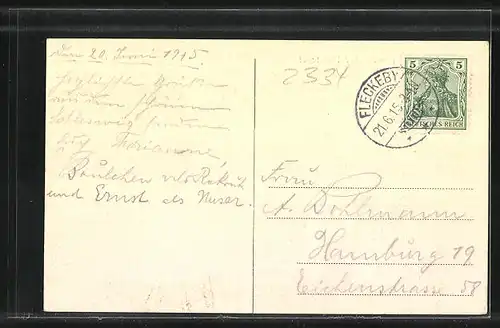 Den 20. Juni 1915
Herzlichste Grüße
aus dem schönen
Schleswig senden
Euch Marianne,
Paulchen als Rekrut
und Ernst als Muser.
2334
FLECKEBY
21.6.15
5 5
DEUTSCHES REICH
Frau
A. Dohlmann
Hamburg 19
Eichenstrasse 58